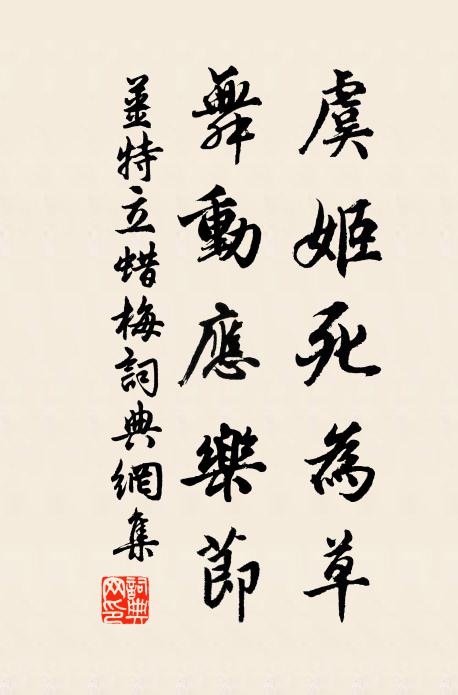 虞姬死為草
舞動應樂節
姜特立蜡梅詞典網集
詞典网印